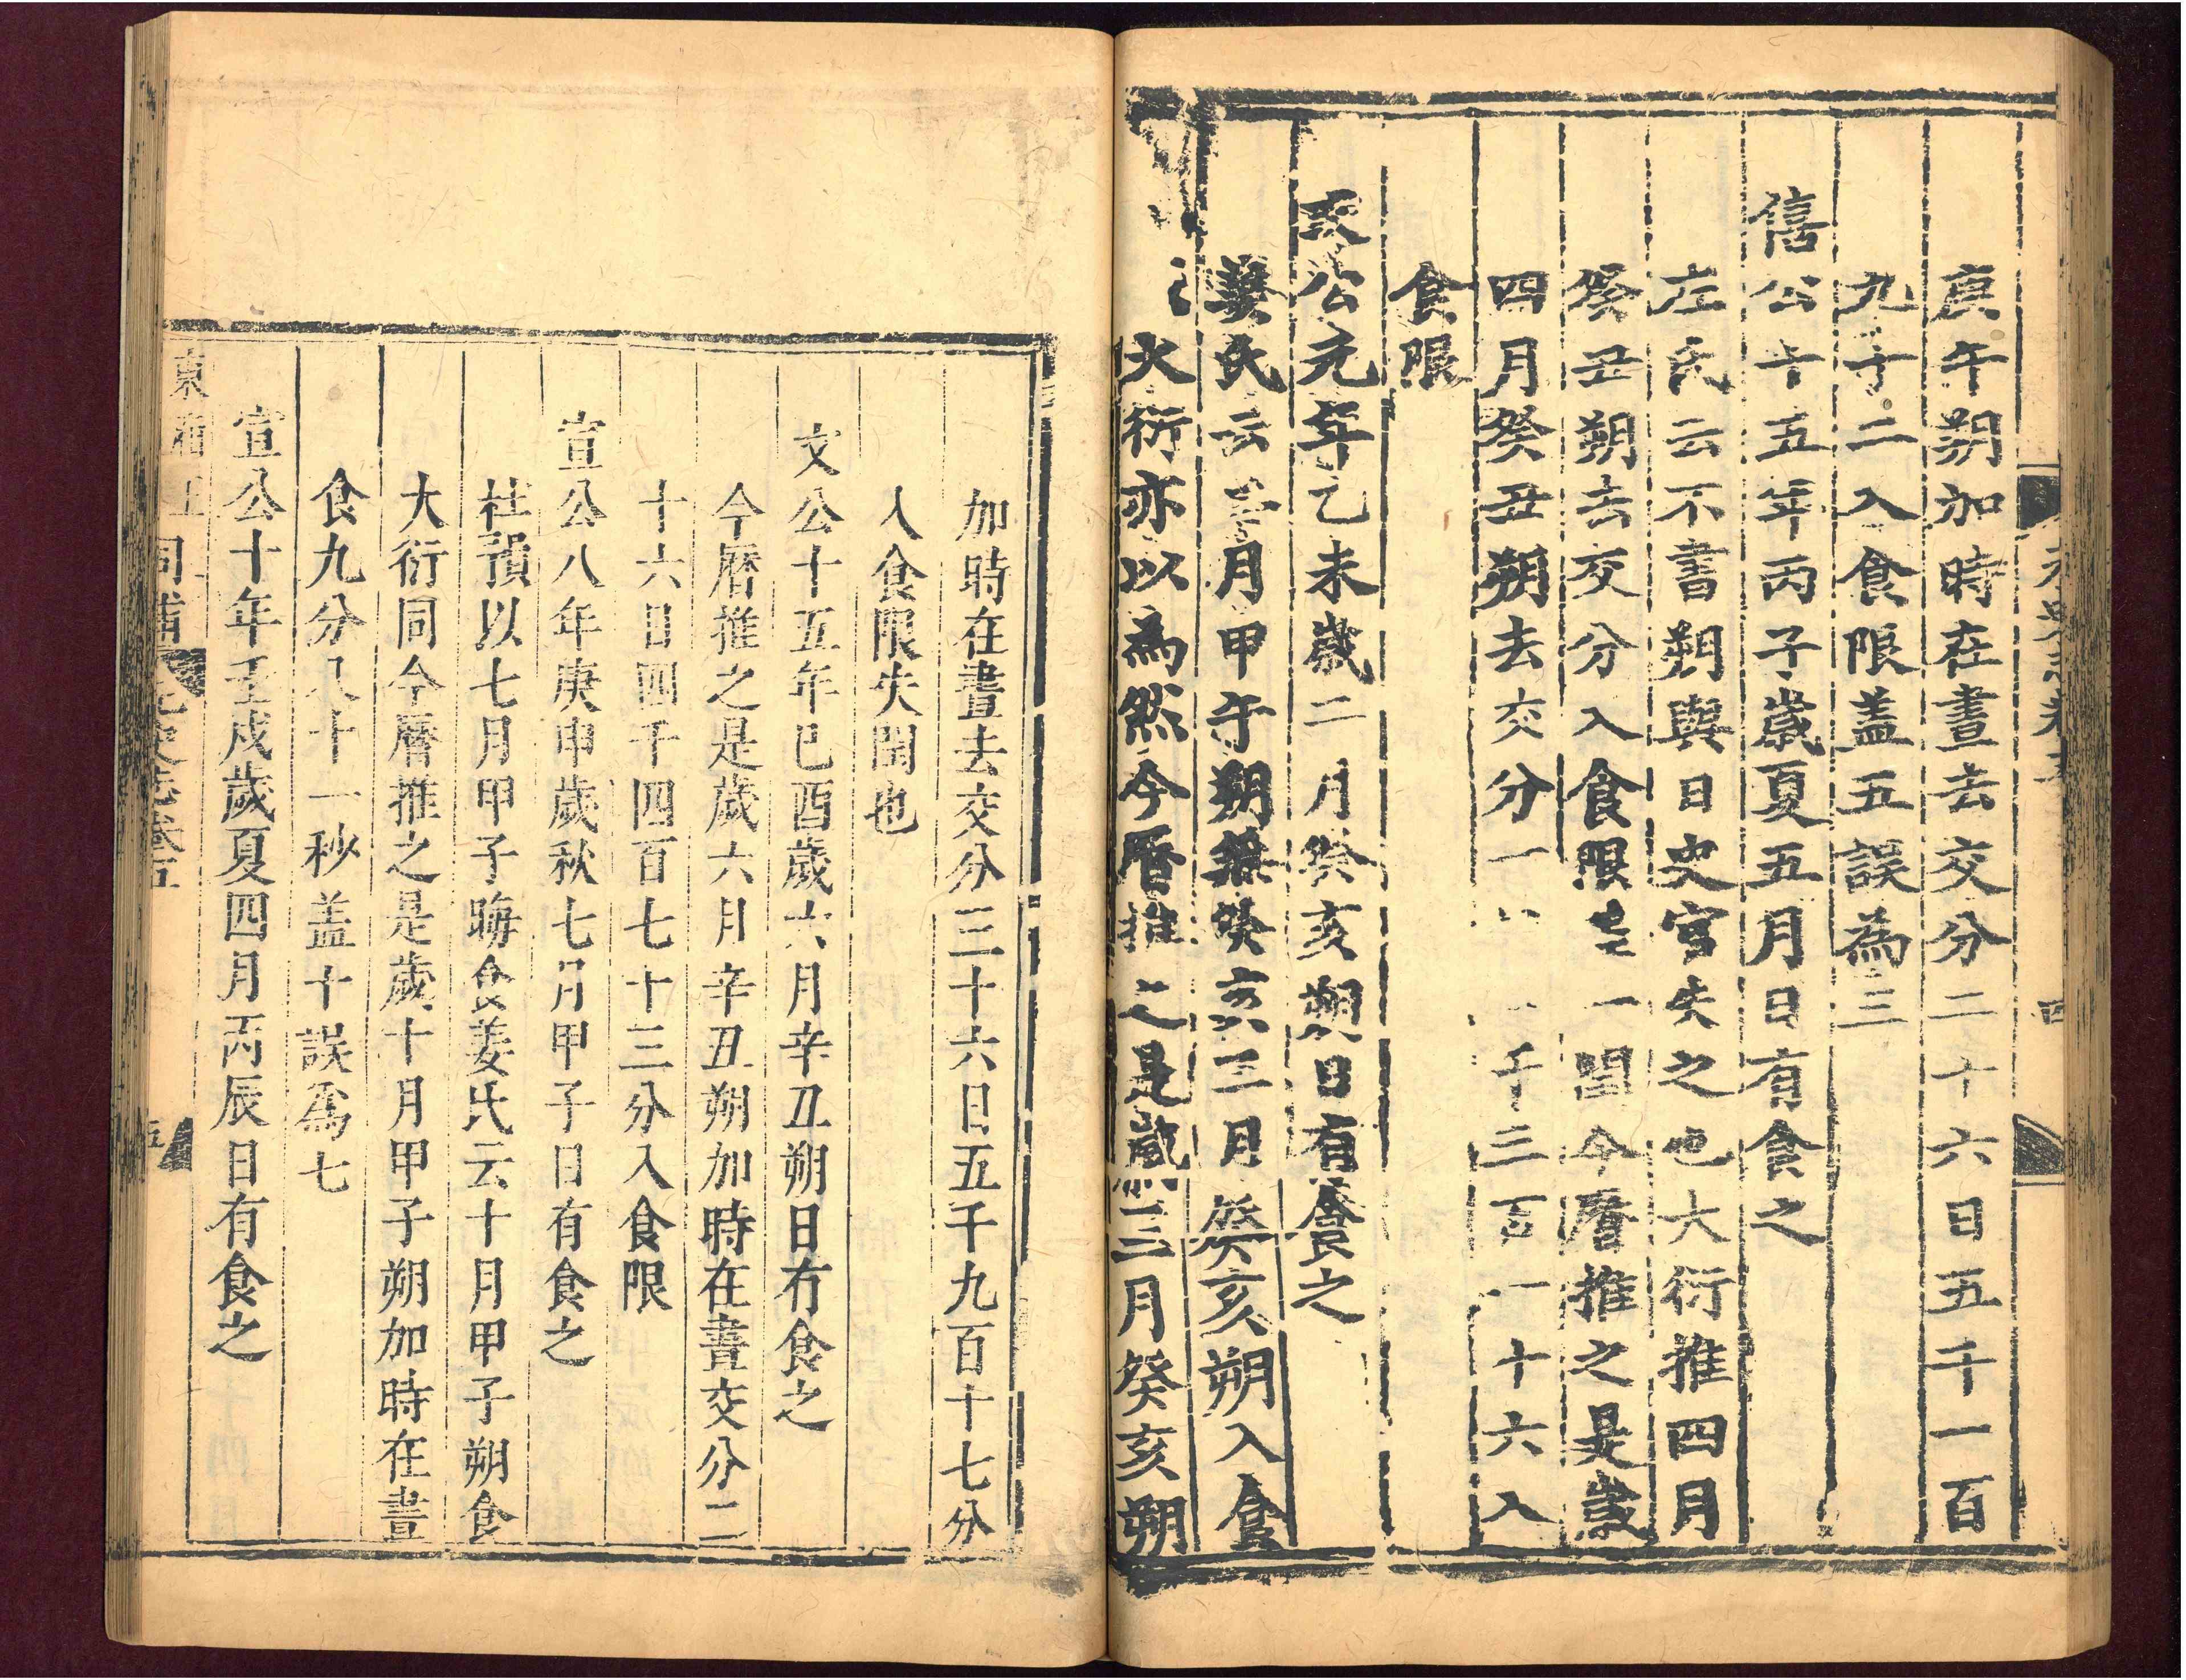 庚午朔加時在晝去交分二十六日五千一百
九十二入食限盖五誤為三
僖公十五年丙子歲夏五月日有食之
左氏云不書朔與日史官失之也大衍推四月
癸丑朔去交分入食限一閏今曆推之是歲
四月癸丑朔去交分一千三百一十六入
食限
文公元年乙未歲二月癸亥朔日有食之
姜氏云三月甲午朔無癸亥三月癸亥朔入食
大衍亦以為然今曆推之是歲三月癸亥朔
加時在晝去交分二十六日五千九百十七分
入食限失閏也
文公十五年巳酉歲六月辛丑朔日有食之
今曆推之是歲六月辛丑朔加時在晝交分二
十六日四千四百七十三分入食限
宣公八年庚申歲秋七月甲子日有食之
杜預以七月甲子晦食姜氏云十月甲子朔食
大衍同今曆推之是歲十月甲子朔加時在晝
食九分八十一秒盖十誤爲七
宣公十年壬戌歲夏四月丙辰日有食之
元史志卷五
五
四